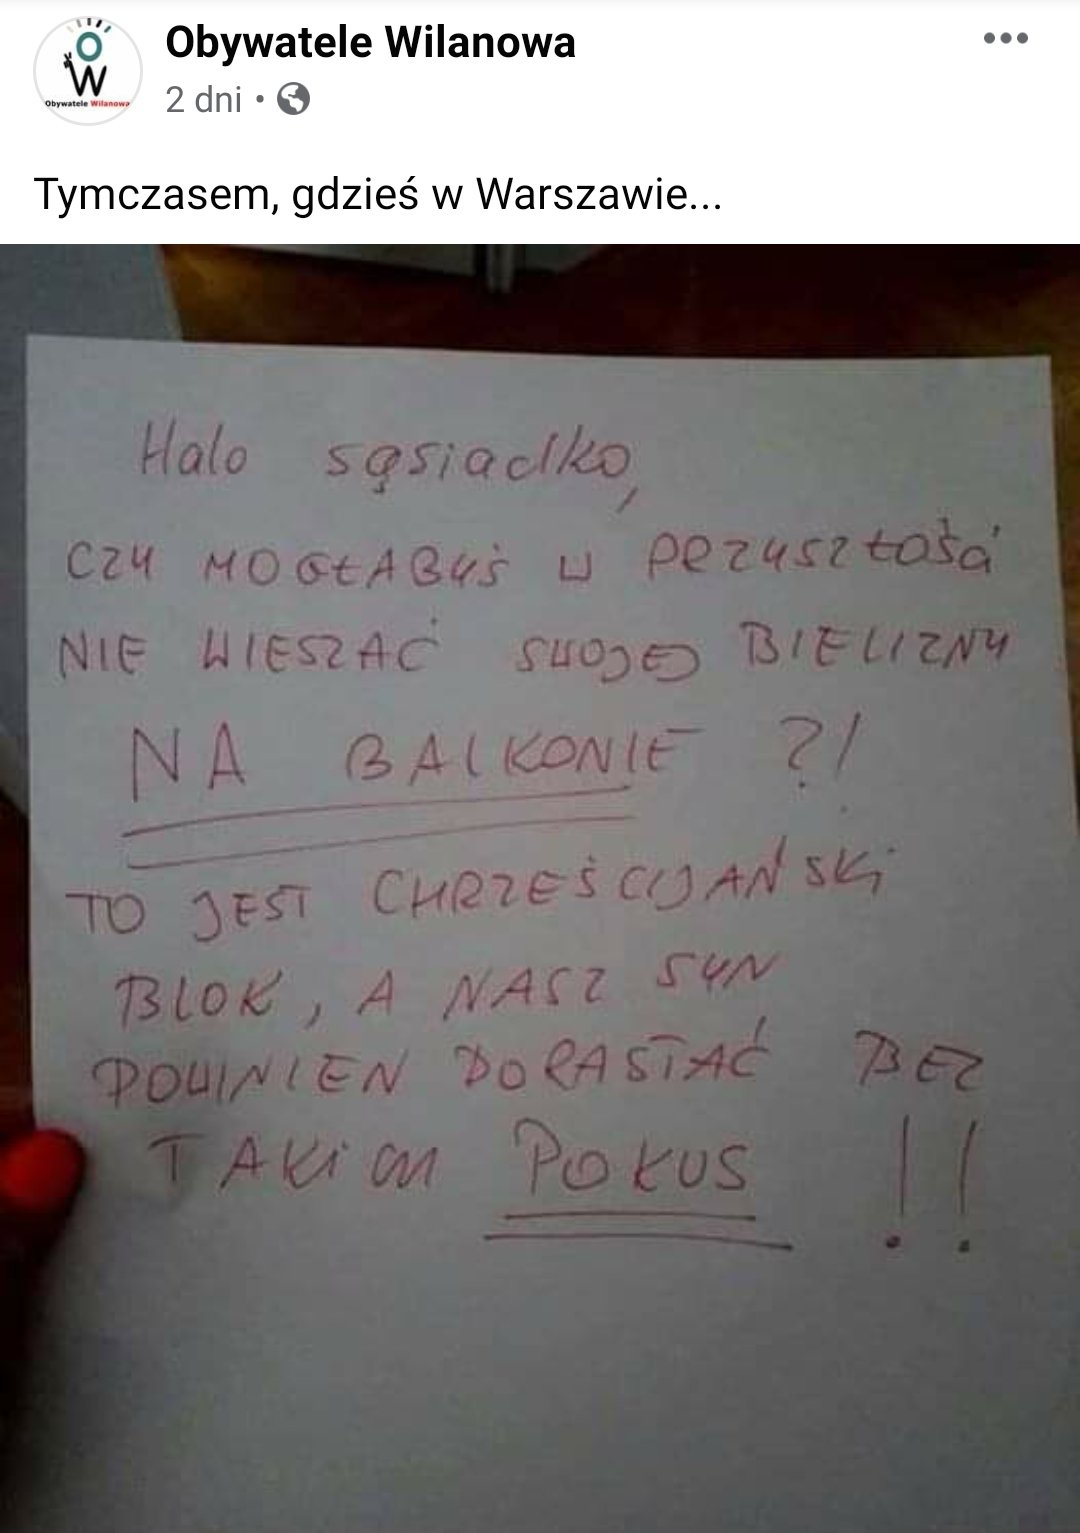 Obywatele Wilanowa
2 dni
OW
Obywatele Wilanowa
Tymczasem, gdzieś w Warszawie...
Halo sąsiadko,
CZY MOGŁABYŚ W PRZYSZŁOŚCI
NIE WIESZAĆ SWOJEJ BIELIZNY
NA BALKONIE ?!
TO JEST CHRZEŚCIJAŃSKI
BLOK, A NASZ SYN
POWINIEN DORASTAĆ BEZ
TAKICH POKUS !!